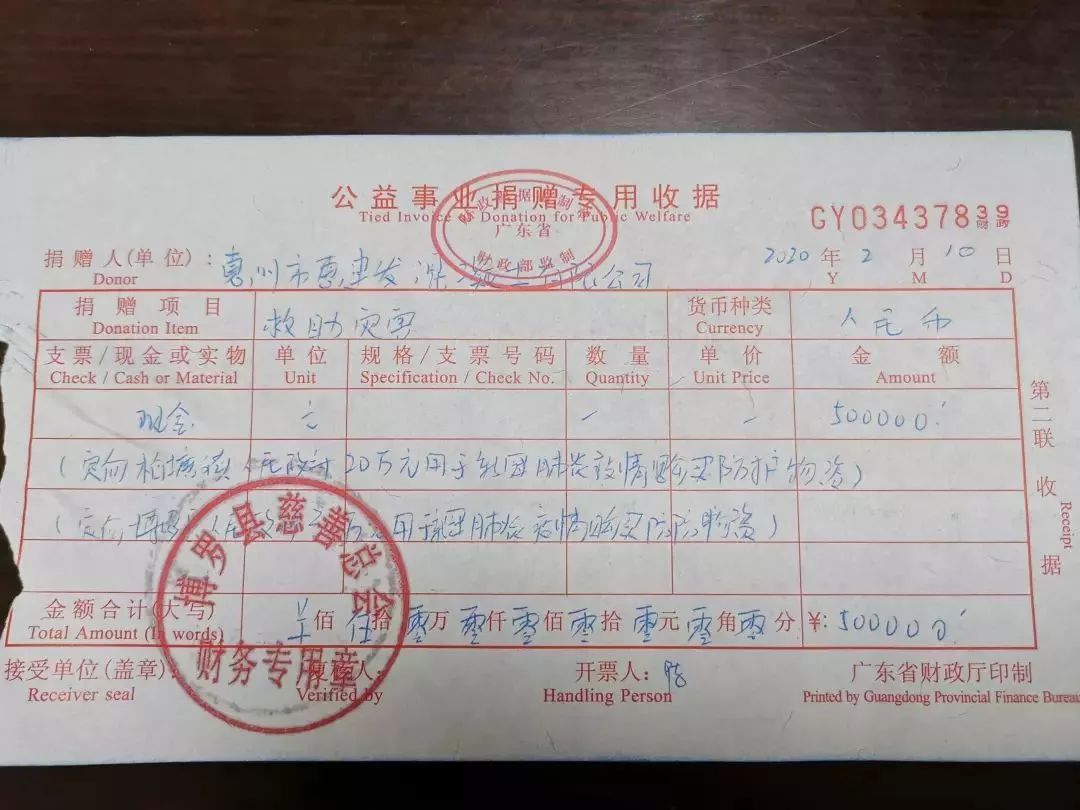 公益事业捐赠专用收据
Tied Invoice of Donation for Public Welfare
财政 据 制章
广东省
财政部监制
GY03437839
财政
捐赠人(单位): 惠州市惠建发 混凝土有限公司
Donor
2020 年 2 月 10 日
Y M D
捐赠项目 救助灾害 货币种类 人民币
Donation Item Currency
支票/现金或实物 单位 规格/支票号码 数量 单价 金额
Check / Cash or Material Unit Specification / Check No. Quantity Unit Price Amount
现金 元 一 一 500000
(定向 20万元用于新冠肺炎疫情购买防护物资)
(定向 用于新冠肺炎疫情购买 物资)
金额合计(大写) 佰 伍 拾 零 万 零 仟 零 佰 零 拾 零 元 零 角 零 分 ¥: 500000
Total Amount (In words)
接受单位(盖章): 复核人: 开票人: 广东省财政厅印制
Receiver seal Verified by Handling Person Printed by Guangdong Provincial Finance Bureau
博罗县慈善总会
财务专用章
第二联 收据
Receipt